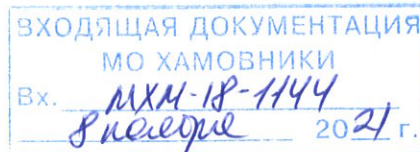 ВХОДЯЩАЯ ДОКУМЕНТАЦИЯ
МО ХАМОВНИКИ
Вх. МХМ-18-1144
8 ноября 2021 г.